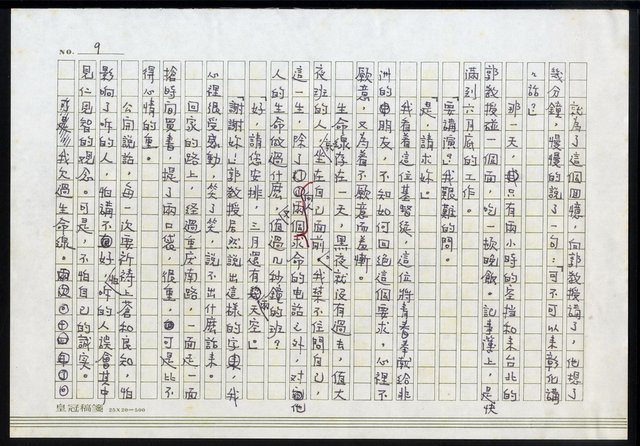 NO. 9
就為了這個困難，向郭教授講了，他想了
幾分鐘，慢慢的說了一句：「可不可以來彰化講
一話？」
那一天，只有兩小時的空擋和來台北的
郭教授碰一個面，吃一頓晚飯。記事簿上，是快
滿到六月底的工作。
「要講演？」我艱難的問。
「是，請求妳。」
我看着這位基督徒，這位將青春奉獻給非
洲的朋友，不知如何回絕這個要求，心裡不
願意，又為着不願意而羞慚。
生命線存在一天，黑夜就沒有過去，值大
夜班的人，坐在自己面前。我禁不住問自己，
這一生，除了兩個求命的電話之外，對他
人的生命做過什麼，值過幾秒鐘的班？
「好，請您安排，三月還有兩天空。」
「謝謝妳！」郭教授居然說出這樣的字來，我
心裡很受感動，笑了笑，說不出什麼話來。
回家的路上，經過重慶南路，一面走一面
搶時間買書，提了兩口袋，很重，可是比不
得心情的重。
公開說話，每一次要祈禱上蒼和良知，怕
影響了聽的人，怕講不好，怕聽的人誤會其中
見仁見智的觀念。可是，不怕自己的誠實。
我欠過生命線。
皇冠稿箋 25X20=500